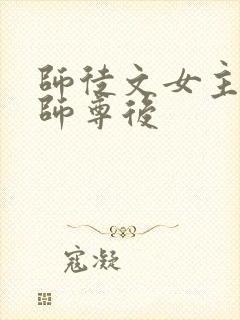 師徒文女主
師尊後
寇凝